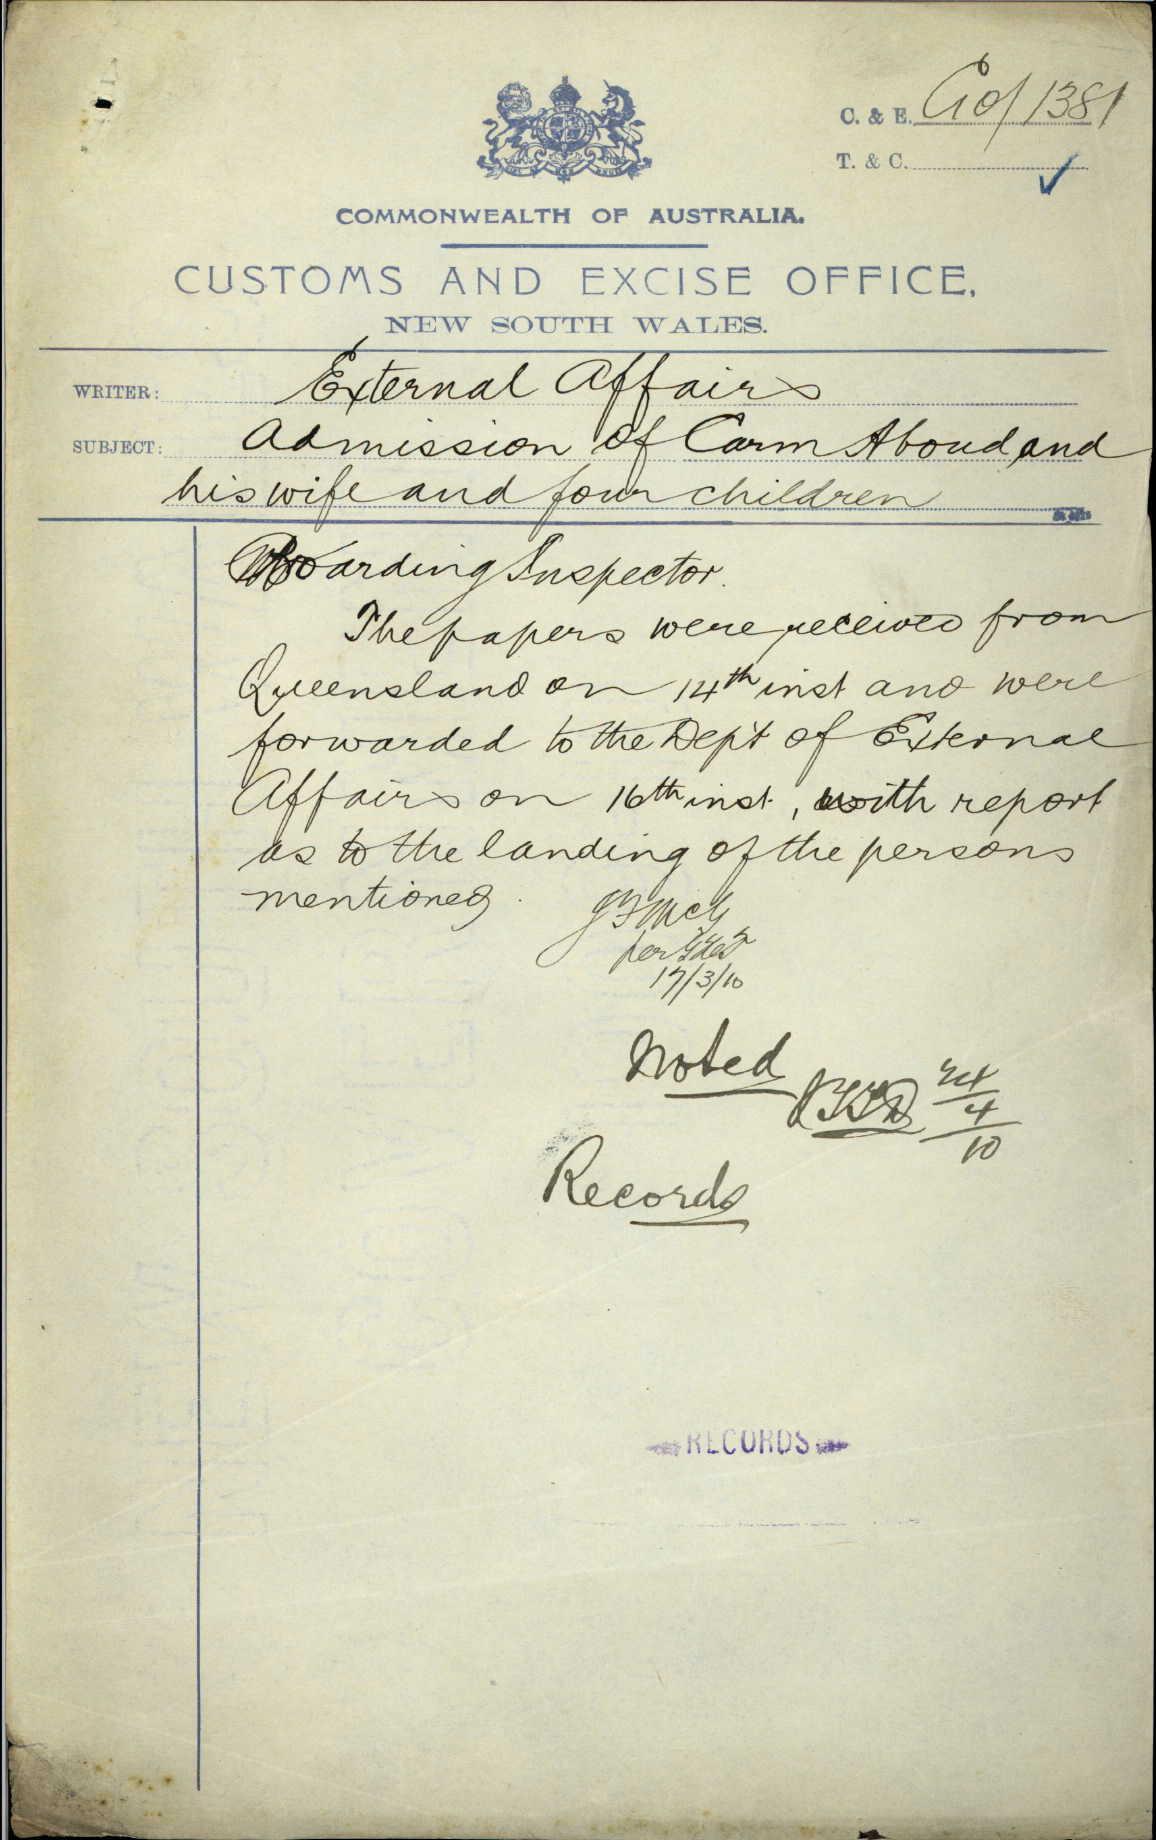 C. & E. 10/1381
T. & C.
COMMONWEALTH OF AUSTRALIA.
CUSTOMS AND EXCISE OFFICE,
NEW SOUTH WALES.
WRITER: External Affairs
SUBJECT: Admission of Carm Aboud and
his wife and four children
Boarding Inspector.
The papers were received from
Queensland on 14th inst and were
forwarded to the Dept of External
Affairs on 16th inst, with report
as to the landing of the persons
mentioned.
JFMcG
per
17/3/10
Noted
4
10
Records
RECORDS